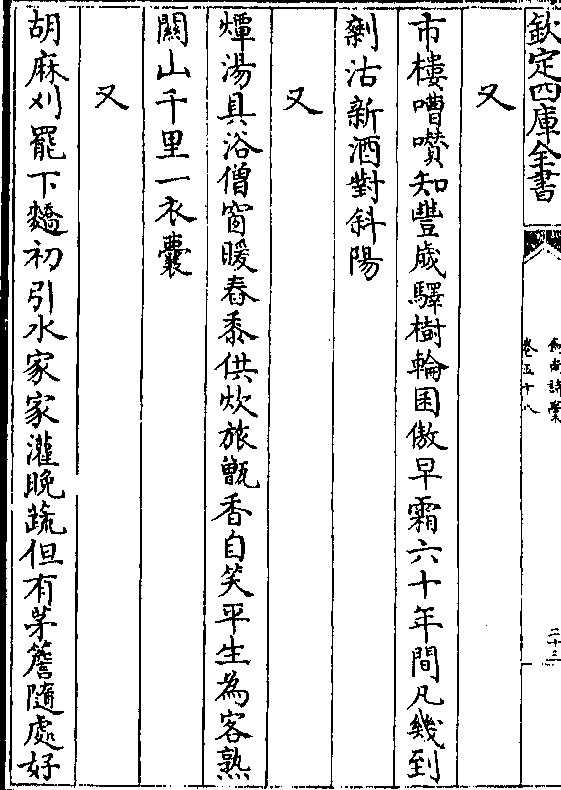 欽定四庫全書
劍南詩稾
卷五十八
二十三
又
市樓嘈囋知豐歳驛樹輪囷傲早霜六十年間凡幾到
剰沽新酒對斜陽
又
燂湯具浴僧窗暖舂黍供炊旅甑香自笑平生為客熟
闗山千里一衣囊
又
胡麻刈罷下麰初引水家家灌晚蔬但有茅簷隨處好